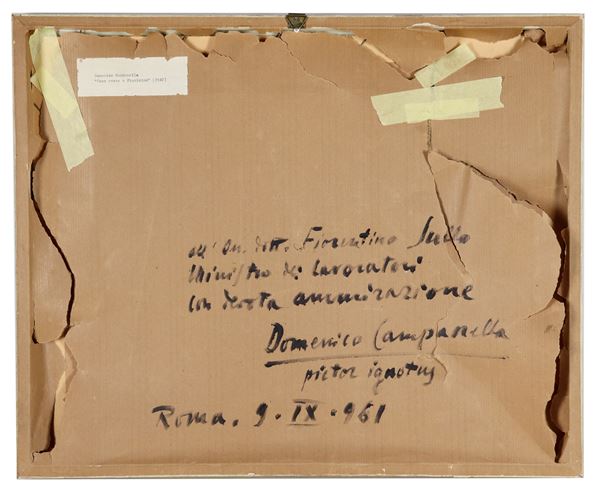 Domenico Campanella
all' On. dott. Fiorentino Sullo
Ministro dei lavoratori
con devota ammirazione
Domenico Campanella
pictor ignotus
Roma. 9. IX. 961